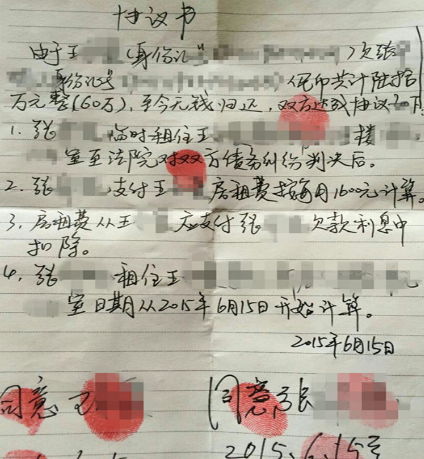 协议书
由于王 (身份证号 )欠张
身份证号 人民币共计陆拾
万元整(60万),至今无钱归还,双方达成协议如下
1、张 临时租住王 楼
室至法院对双方债务纠纷判决后。
2、张 支付王 房租费按每月1600元计算。
3、房租费从王 应支付张 欠款利息中
扣除。
4、张 租住王
室日期从2015年6月15日开始计算。
2015年6月15日
同意 王 同意 张
2015.6.15号